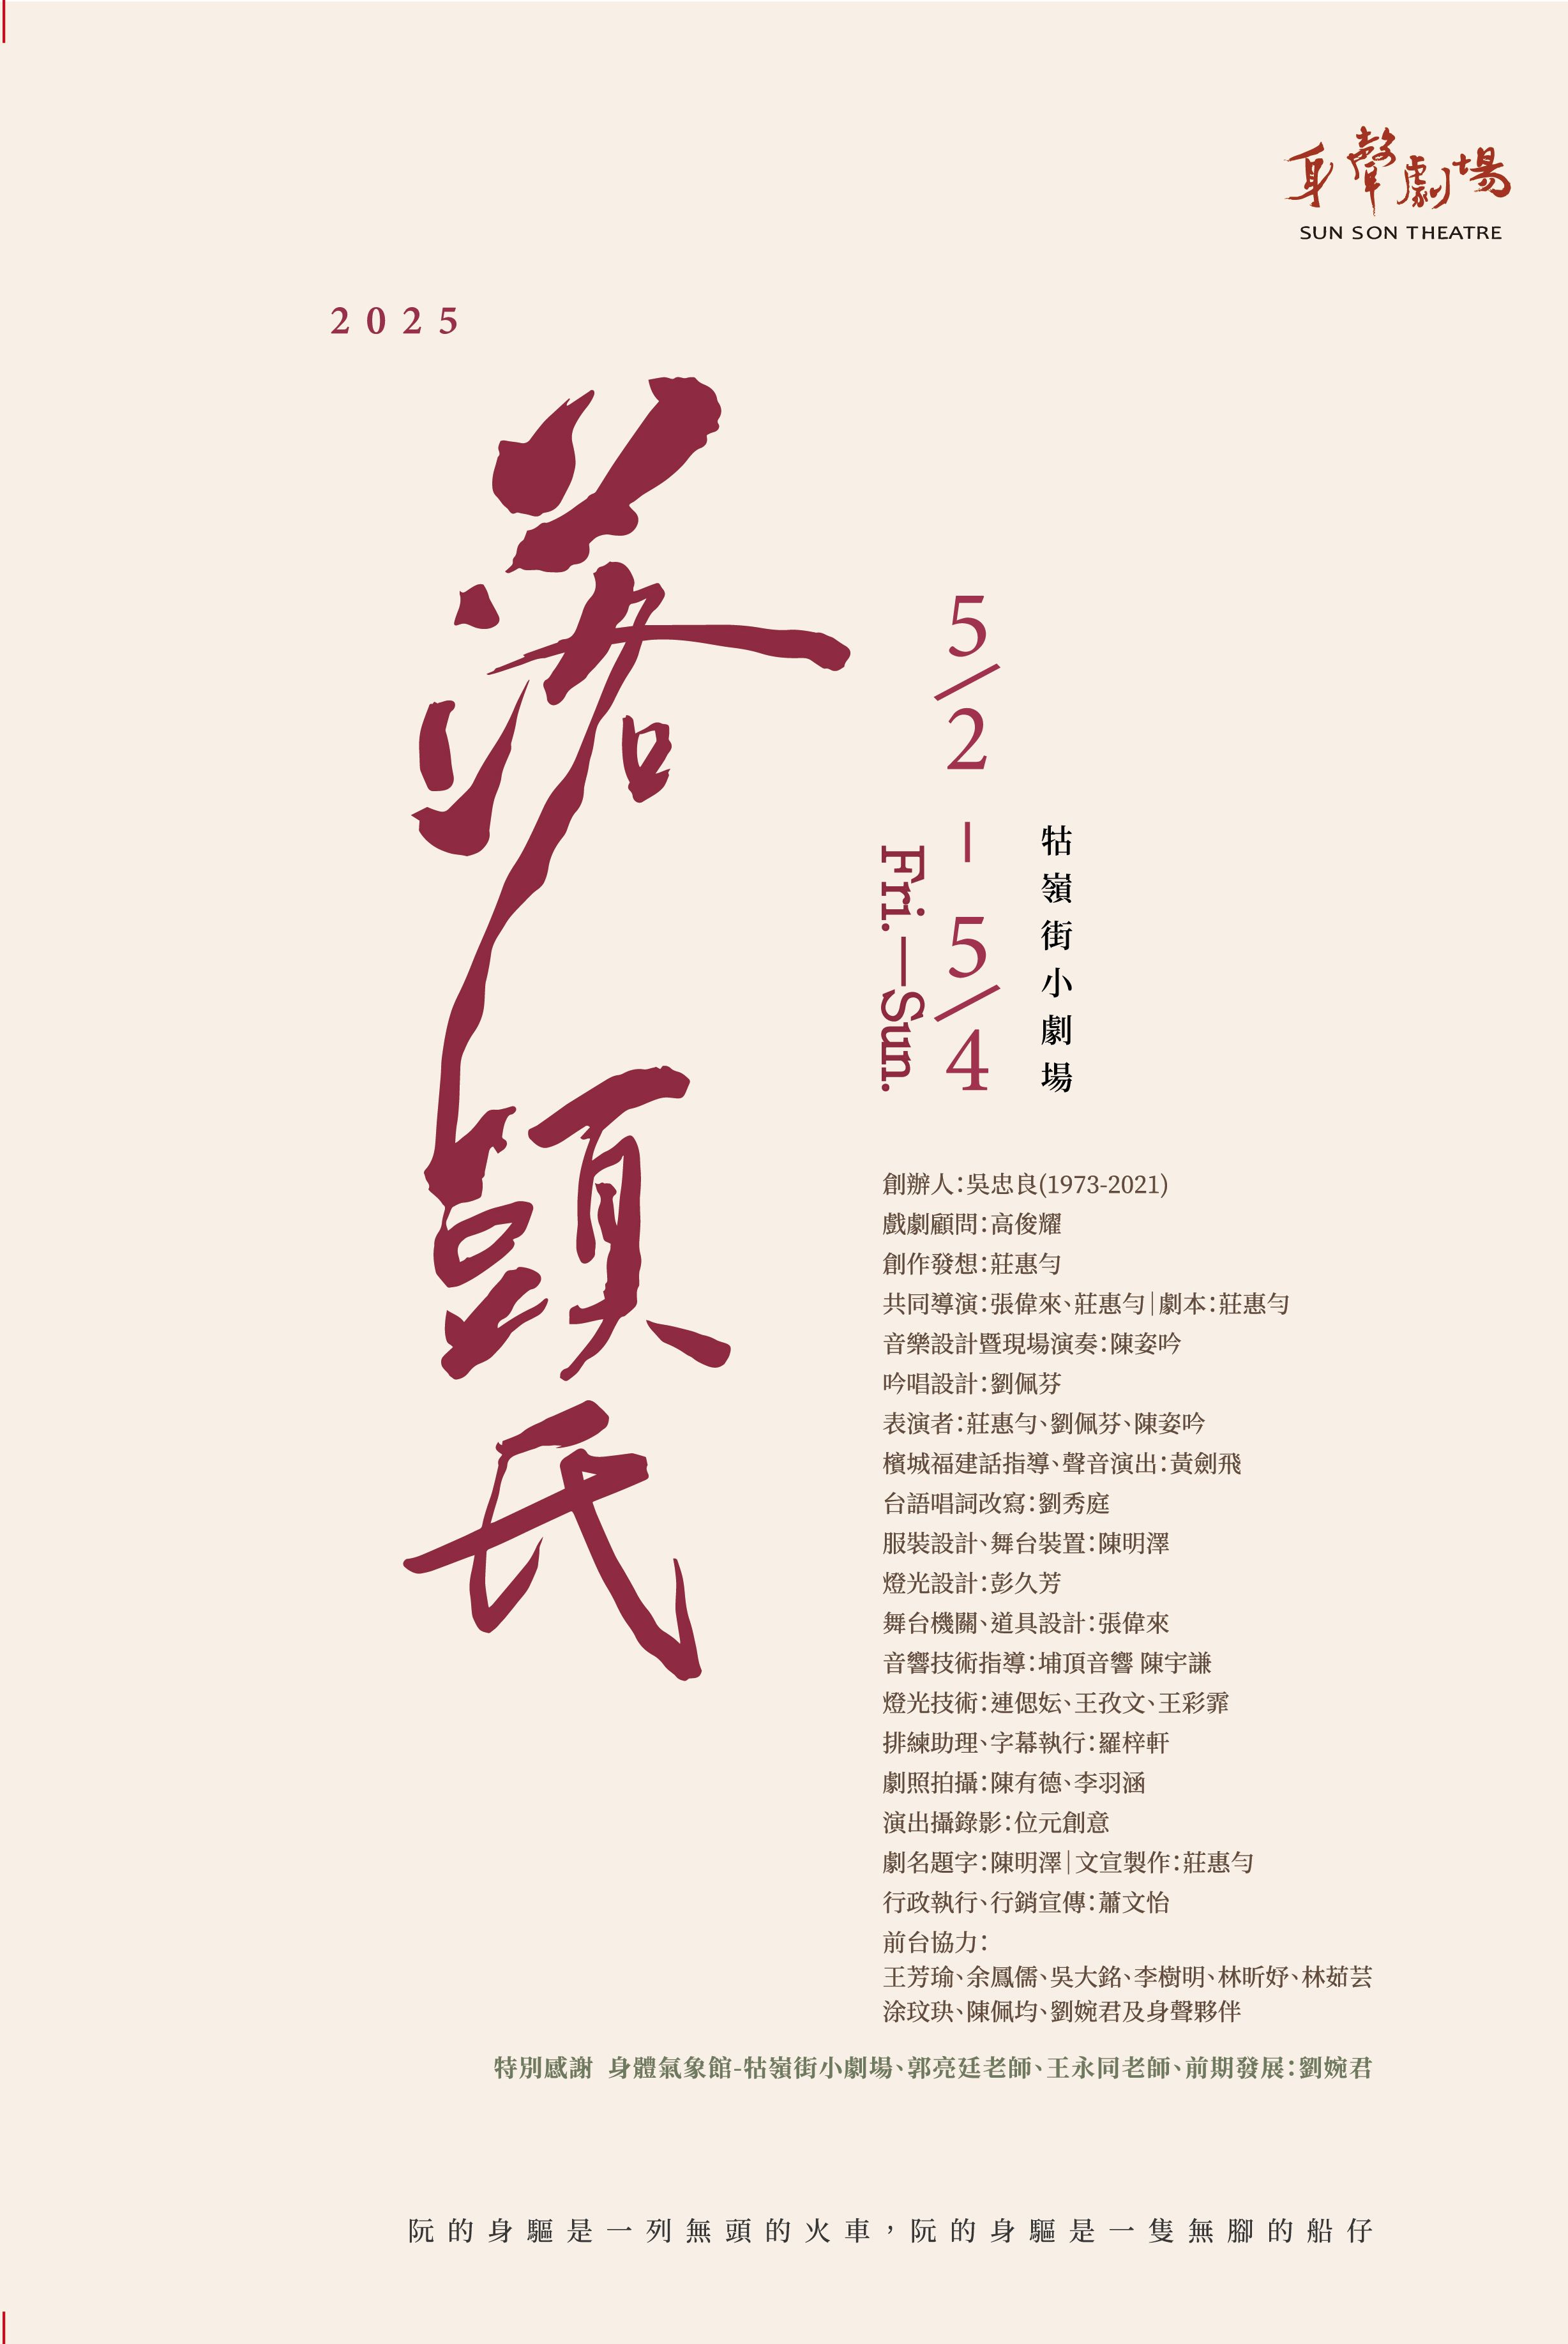 身聲劇場
SUN SON THEATRE
2025
落頭氏
5/2–5/4
Fri.—Sun.
牯嶺街小劇場
創辦人：吳忠良(1973-2021)
戲劇顧問：高俊耀
創作發想：莊惠勻
共同導演：張偉來、莊惠勻｜劇本：莊惠勻
音樂設計暨現場演奏：陳姿吟
吟唱設計：劉佩芬
表演者：莊惠勻、劉佩芬、陳姿吟
檳城福建話指導、聲音演出：黃劍飛
台語唱詞改寫：劉秀庭
服裝設計、舞台裝置：陳明澤
燈光設計：彭久芳
舞台機關、道具設計：張偉來
音響技術指導：埔頂音響 陳宇謙
燈光技術：連偲妘、王孜文、王彩霏
排練助理、字幕執行：羅梓軒
劇照拍攝：陳有德、李羽涵
演出攝錄影：位元創意
劇名題字：陳明澤｜文宣製作：莊惠勻
行政執行、行銷宣傳：蕭文怡
前台協力：
王芳瑜、余鳳儒、吳大銘、李樹明、林昕妤、林茹芸
涂玟玦、陳佩均、劉婉君及身聲夥伴
特別感謝 身體氣象館-牯嶺街小劇場、郭亮廷老師、王永同老師、前期發展：劉婉君
阮的身驅是一列無頭的火車，阮的身驅是一隻無腳的船仔